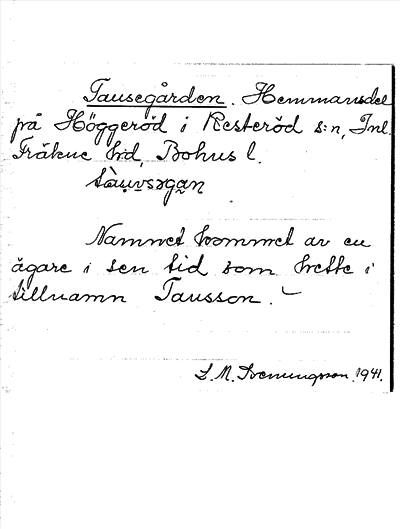 Tausegården. Hemmansdel
på Höggeröd i Resteröd s:n, Inl.
Fräkne hd, Bohus l.
Namnet kommet av en
ägare i sen tid som hette i
tillnamn Tausson.
L. M. Svenungsson. 1941.